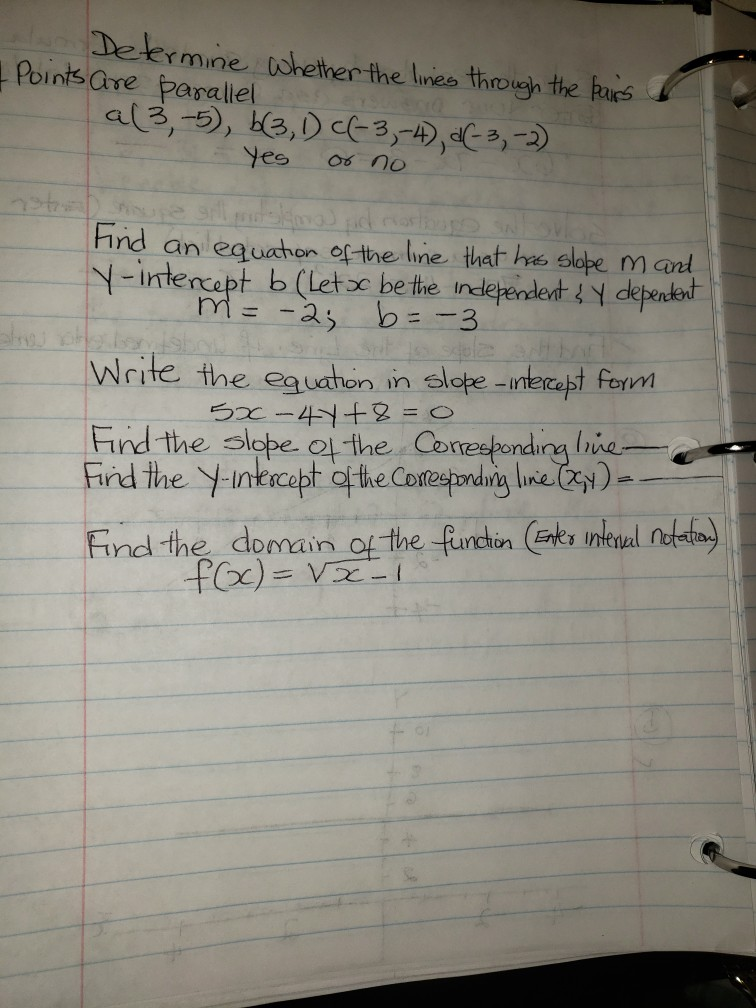 Determine whether the lines through the pairs
Points are parallel
a(3,-5), b(3,1) c(-3,-4), d(-3,-2)
yes or no
Find an equation of the line that has slope m and
y-intercept b (Let x be the independent & y dependent
m = -2; b = -3
Write the equation in slope-intercept form
5x - 4y + 8 = 0
Find the slope of the Corresponding line —
Find the y-intercept of the Corresponding line (x,y) = —
Find the domain of the function (Enter interval notation)
f(x) = √x-1